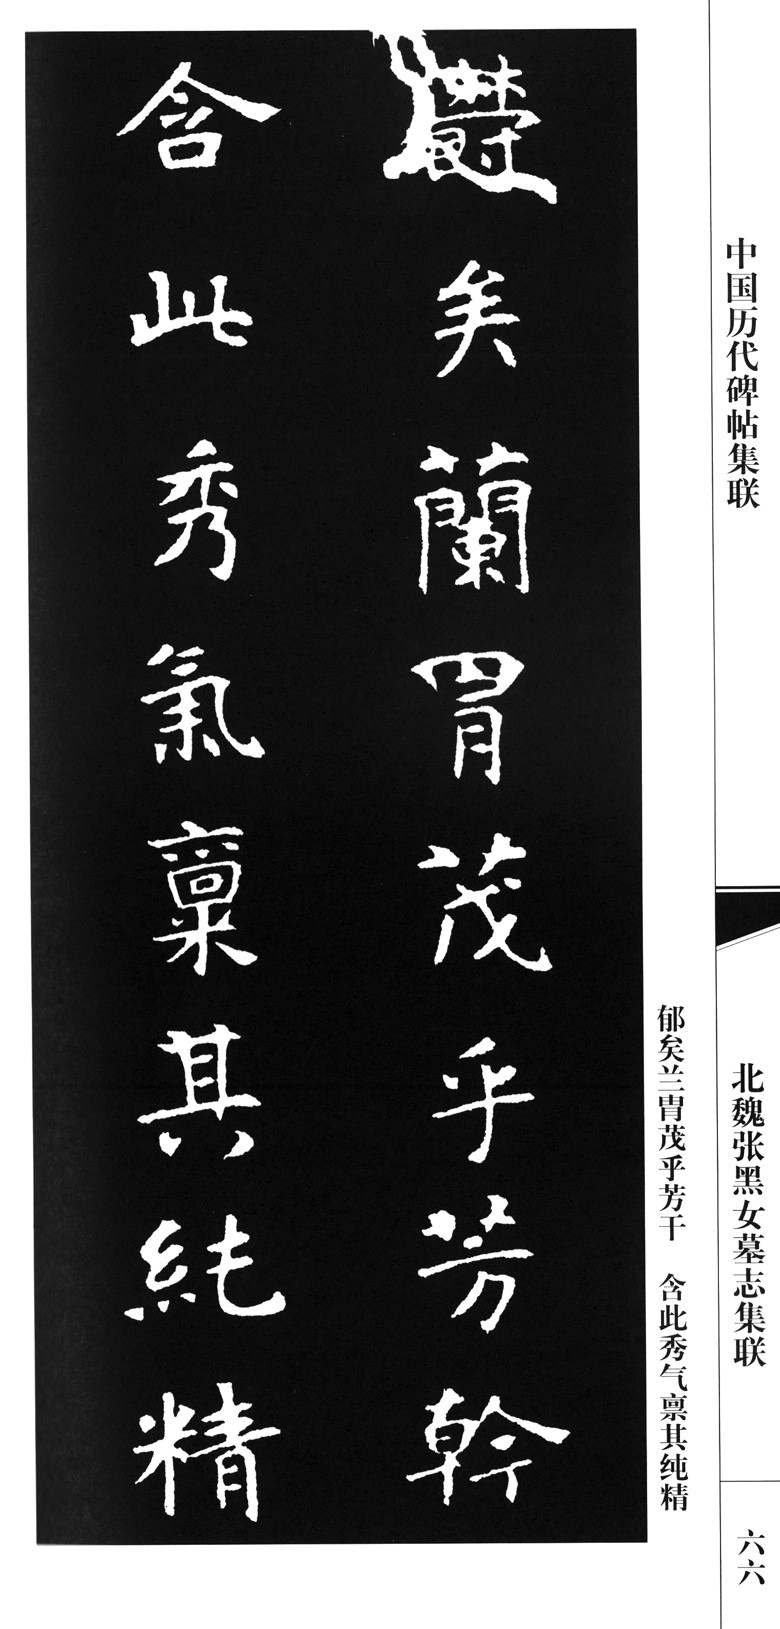 中国历代碑帖集联
北魏张黑女墓志集联
六六
郁矣兰胄茂乎芳干 含此秀气禀其纯精
鬱矣蘭胄茂乎芳幹
含此秀氣稟其純精